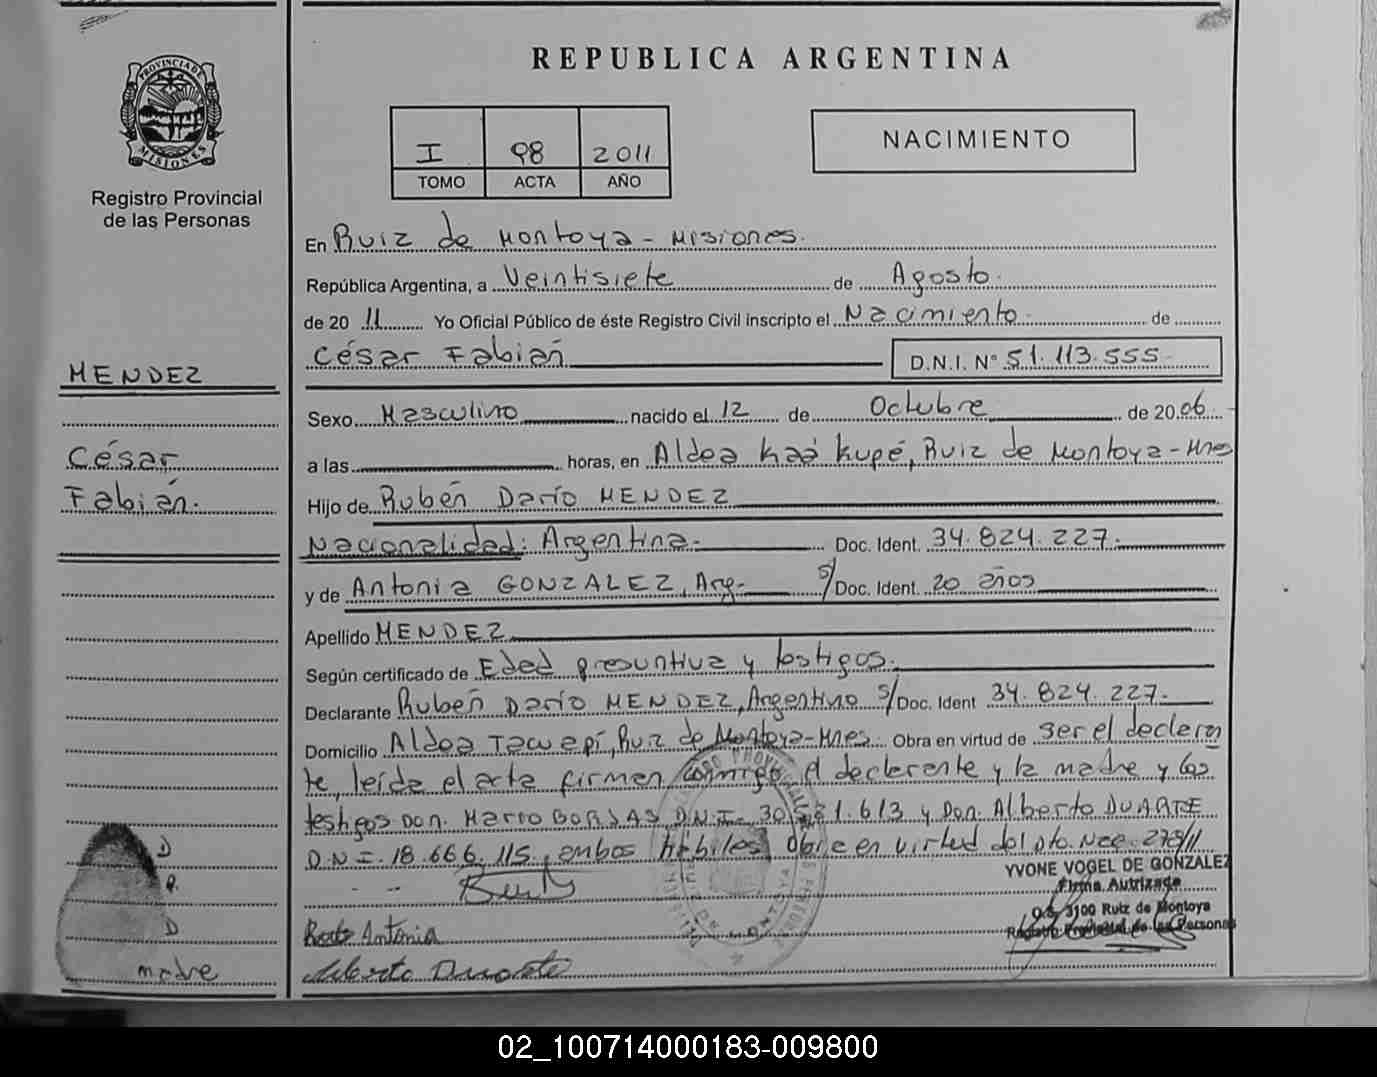 PROVINCIA DE
MISIONES
Registro Provincial
de las Personas
MENDEZ
César
Fabián.
D
P.
D
madre
REPUBLICA ARGENTINA
I 98 2011
TOMO ACTA AÑO
NACIMIENTO
En Ruiz de Montoya - Misiones.
República Argentina, a Veintisiete de Agosto.
de 20 11 Yo Oficial Público de éste Registro Civil inscripto el Nacimiento. de
César Fabián D.N.I. N° 51.113.555
Sexo Masculino nacido el 12 de Octubre de 20 06
a las horas, en Aldea Kaá Kupé, Ruiz de Montoya - Mnes
Hijo de Rubén Darío MENDEZ
Nacionalidad: Argentina. Doc. Ident. 34.824.227.
y de Antonia GONZALEZ, Arg. s/ Doc. Ident. 20 años
Apellido MENDEZ
Según certificado de Edad presuntiva y testigos.
Declarante Rubén Darío MENDEZ, Argentino s/ Doc. Ident 34.824.227.
Domicilio Aldea Tacuapí, Ruiz de Montoya - Mnes Obra en virtud de ser el declaran
te, leída el acta firman conmigo el declarante y la madre y los
testigos Don. Mario BORJAS D.N.I. y Don. Alberto DUARTE
D.N.I. 18.666.115, ambos hábiles Obre en virtud del Dto. Nac. 278/11
YVONE VOGEL DE GONZALEZ
Firma Autrizada
O.S. 3100 Ruiz de Montoya
Registro Provincial de las Personas
Antonia
Alberto Duarte
02_100714000183-009800